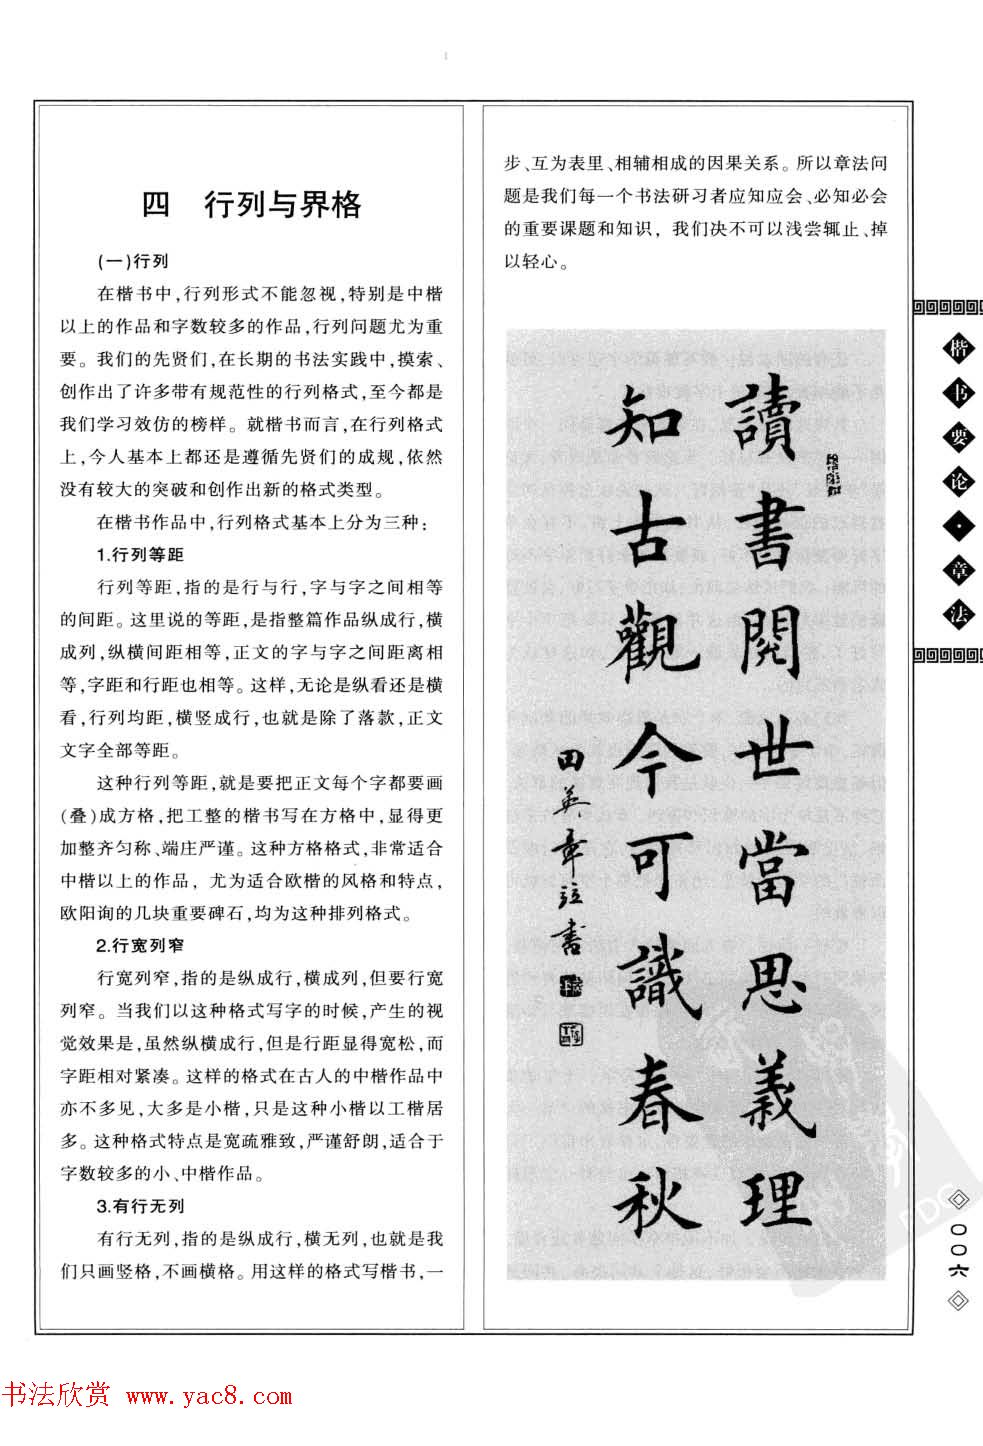 四 行列与界格
(一)行列
在楷书中,行列形式不能忽视,特别是中楷
以上的作品和字数较多的作品,行列问题尤为重
要。我们的先贤们,在长期的书法实践中,摸索、
创作出了许多带有规范性的行列格式,至今都是
我们学习效仿的榜样。就楷书而言,在行列格式
上,今人基本上都还是遵循先贤们的成规,依然
没有较大的突破和创作出新的格式类型。
在楷书作品中,行列格式基本上分为三种:
1.行列等距
行列等距,指的是行与行,字与字之间相等
的间距。这里说的等距,是指整篇作品纵成行,横
成列,纵横间距相等,正文的字与字之间距离相
等,字距和行距也相等。这样,无论是纵看还是横
看,行列均距,横竖成行,也就是除了落款,正文
文字全部等距。
这种行列等距,就是要把正文每个字都要画
(叠)成方格,把工整的楷书写在方格中,显得更
加整齐匀称、端庄严谨。这种方格格式,非常适合
中楷以上的作品，尤为适合欧楷的风格和特点,
欧阳询的几块重要碑石,均为这种排列格式。
2.行宽列窄
行宽列窄,指的是纵成行,横成列,但要行宽
列窄。当我们以这种格式写字的时候,产生的视
觉效果是,虽然纵横成行,但是行距显得宽松,而
字距相对紧凑。这样的格式在古人的中楷作品中
亦不多见,大多是小楷,只是这种小楷以工楷居
多。这种格式特点是宽疏雅致,严谨舒朗,适合于
字数较多的小、中楷作品。
3.有行无列
有行无列,指的是纵成行,横无列,也就是我
们只画竖格,不画横格。用这样的格式写楷书,一
步、互为表里、相辅相成的因果关系。所以章法问
题是我们每一个书法研习者应知应会、必知必会
的重要课题和知识，我们决不可以浅尝辄止、掉
以轻心。
讀書閱世當思義理
知古觀今可識春秋
田英章敬書
楷书要论·章法
〇〇六
书法欣赏 www.yac8.com